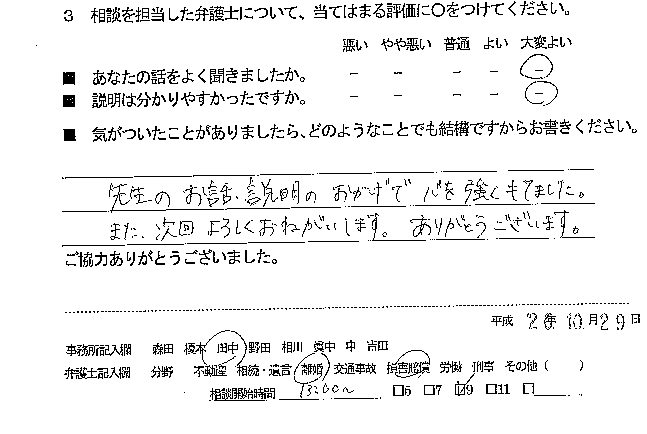 3 相談を担当した弁護士について、当てはまる評価に○をつけてください。
悪い やや悪い 普通 よい 大変よい
■ あなたの話をよく聞きましたか。 － － － － －
■ 説明は分かりやすかったですか。 － － － － －
■ 気がついたことがありましたら、どのようなことでも結構ですからお書きください。
先生のお話、説明のおかげで心を強くもてました。
また、次回よろしくおねがいします。ありがとうございます。
ご協力ありがとうございました。
平成 26年10月29日
事務所記入欄 森田 榎本 田中 野田 相川 眞中 申 吉田
弁護士記入欄 分野 不動産 相続・遺言 離婚 交通事故 損害賠償 労働 刑事 その他( )
相談開始時間 13:00~ □5 □7 ☑9 □11 □